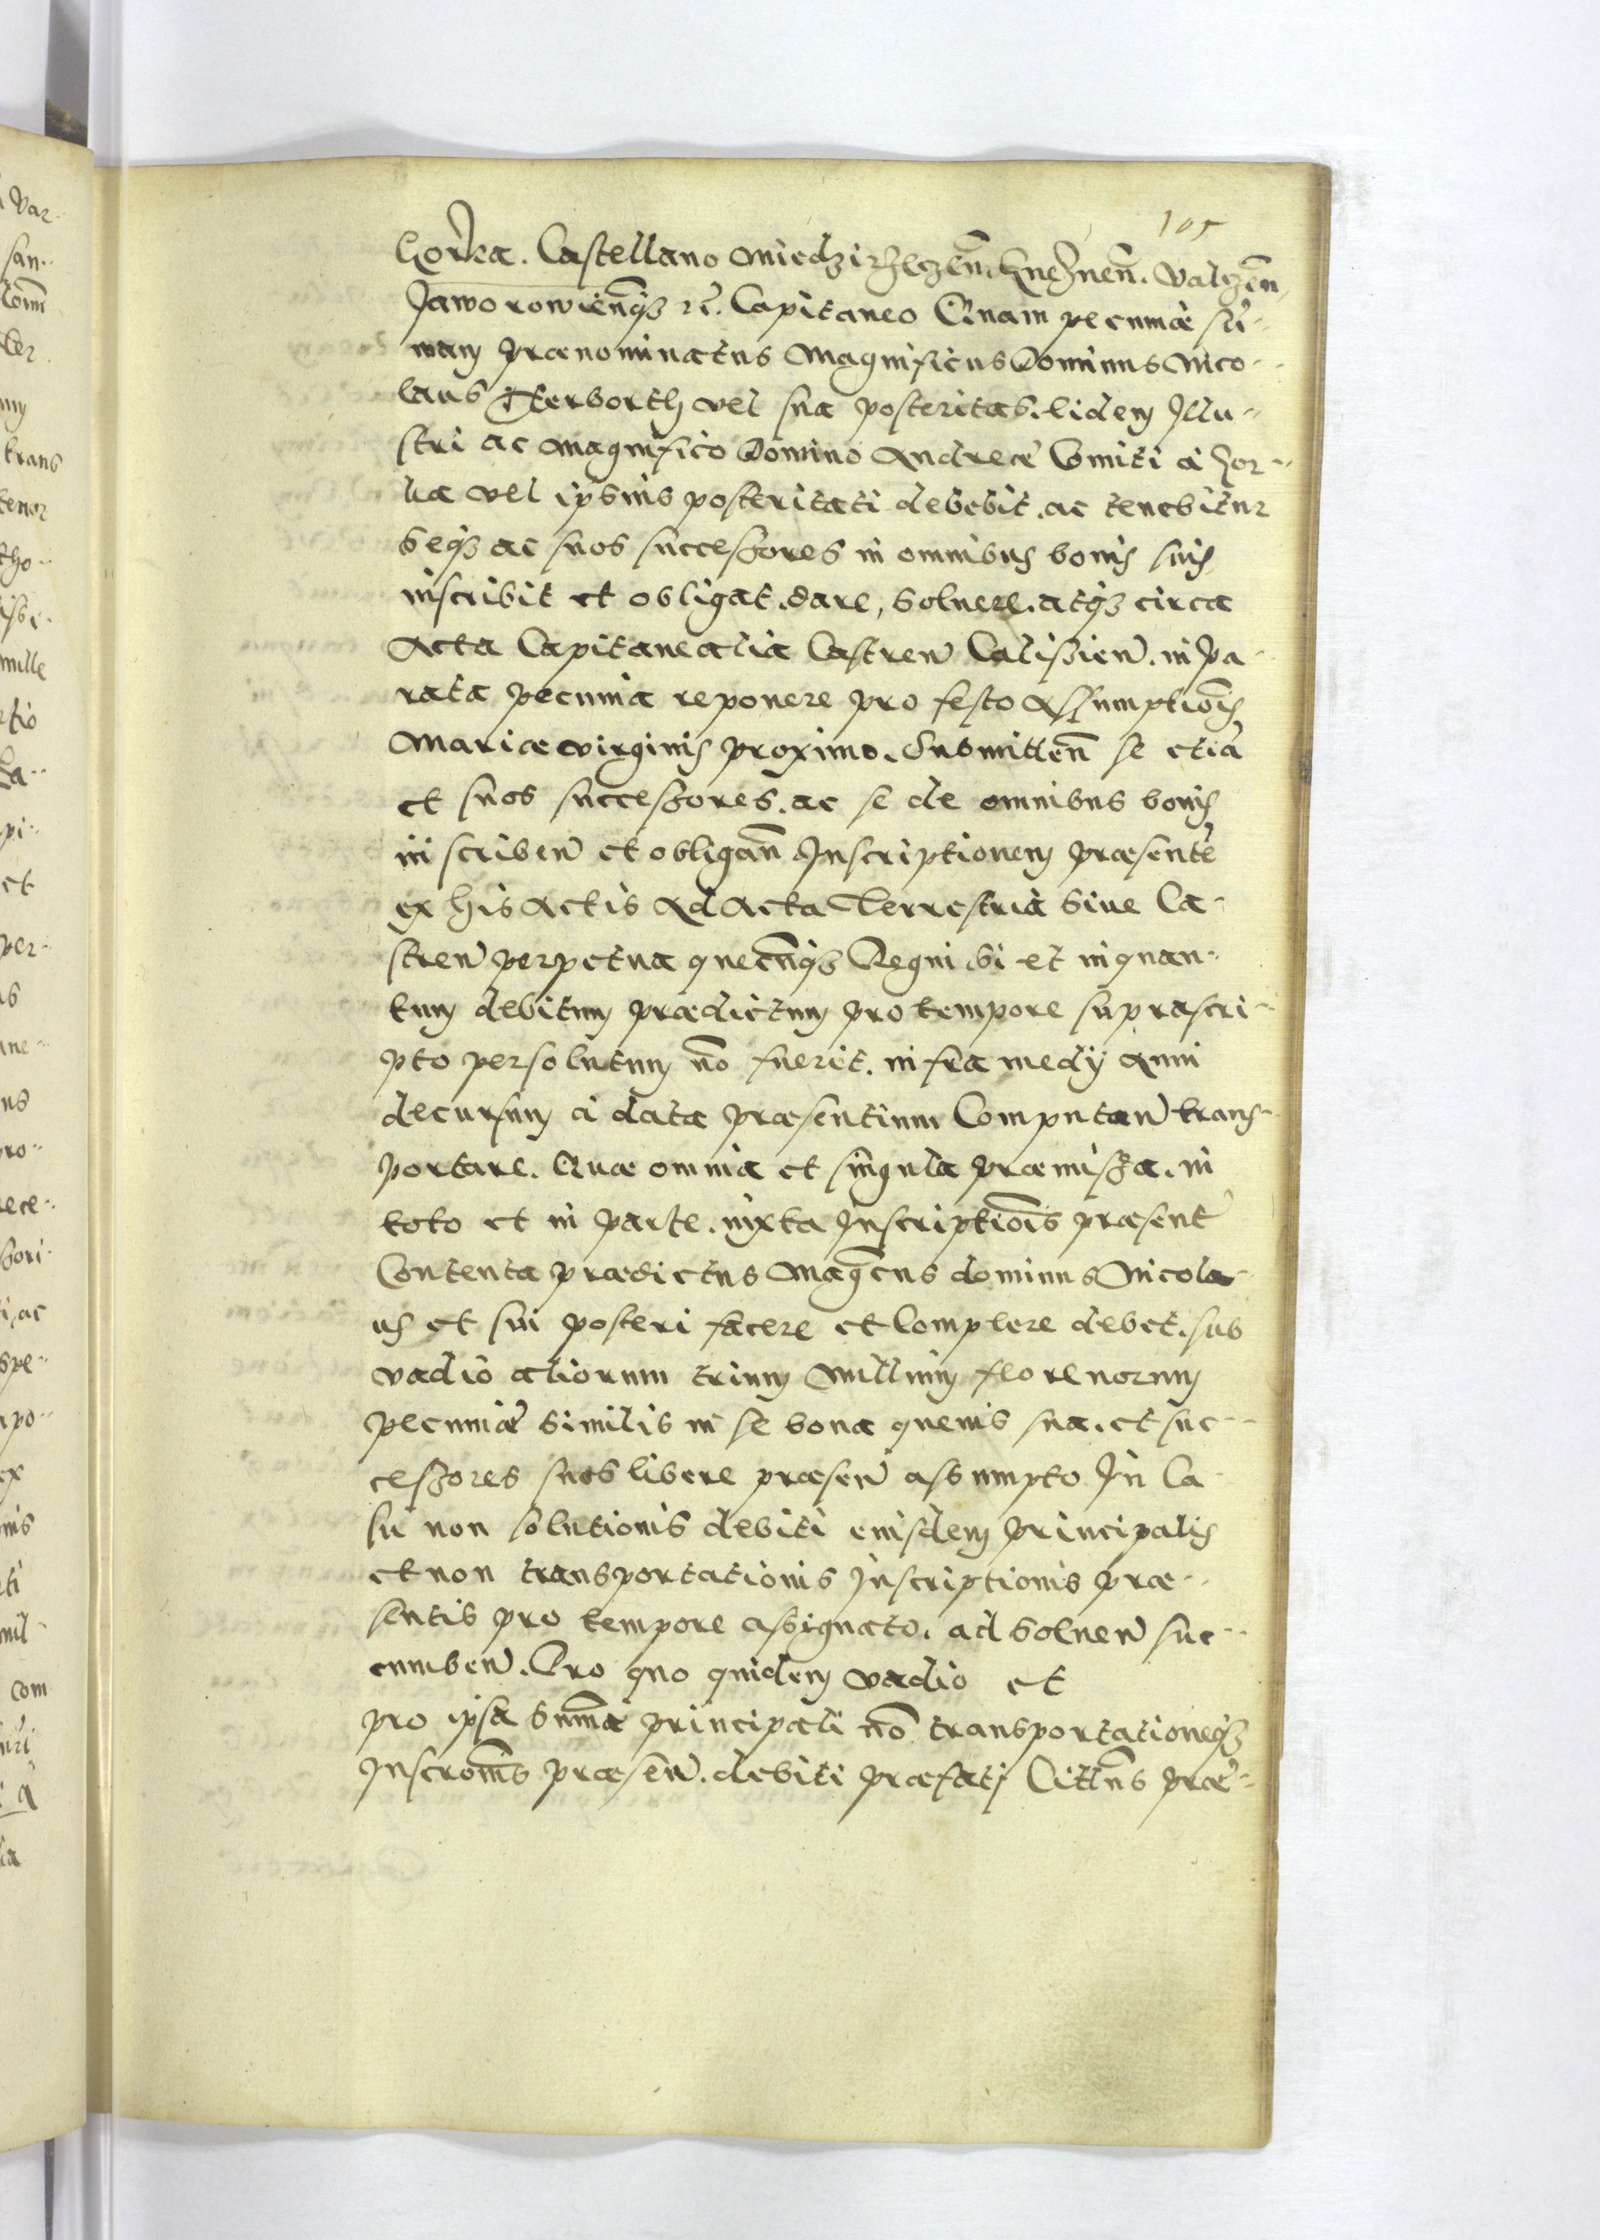 105
Gorka. Castellano Miedzirzeczen̄. Gneznen̄. Valczen̄
Jaworowien̄qȝ rc̄. Capitaneo Quam pecuniæ sū-
mam prænominatus Magnificus Dominus Nico-
laus Therborth vel sua posteritas. Eidem Illu-
stri ac Magnifico Domino Andreæ Comiti á Gor-
ka vel ipsius posteritati debebit. ac tenebitur
Seqȝ ac suos successores in omnibus bonis suis
inscribit et obligat. dare, soluere. atqȝ circa
Acta Capitanealia Castren̄ Calissien̄. in pa-
rata pecunia reponere pro festo Assumptiōis
Mariæ virginis proximo. Submitten̄ se etiā
et suos successores. ac se de omnibus bonis
inscriben̄ et obligan̄ Inscriptionem præsentē
ex his Actis Ad Acta Terrestria siue Ca-
stren̄ perpetua quecūqȝ Regni vbi et inquan-
tum debitum prædictum pro tempore suprascri-
pto persolutum nō fuerit. infra medij Anni
decursum á data præsentium Computan̄ trans-
portare. Quæ omnia et singula præmissa. in
toto et in parte. iuxta Inscriptiōis præsent̄
Contenta prædictus Mag̅cus dominus Nicola-
us et sui posteri facere et Complere debet. sub
vadio aliorum trium Millium florenorum
pecuniæ similis in se bona queuis sua. et suc-
cessores suos libere præsen̄ assumpto In Ca-
su non solutionis debiti eiusdem principalis
et non transportationis Inscriptionis præ-
sentis pro tempore assignato. ad soluen̄ suc-
cumben̄. Pro quo quidem vadio et
pro ipsa sum̄a principali nō transportationeqȝ
Inscrōnis præsen̄. debiti præfati Citt̄us præ-